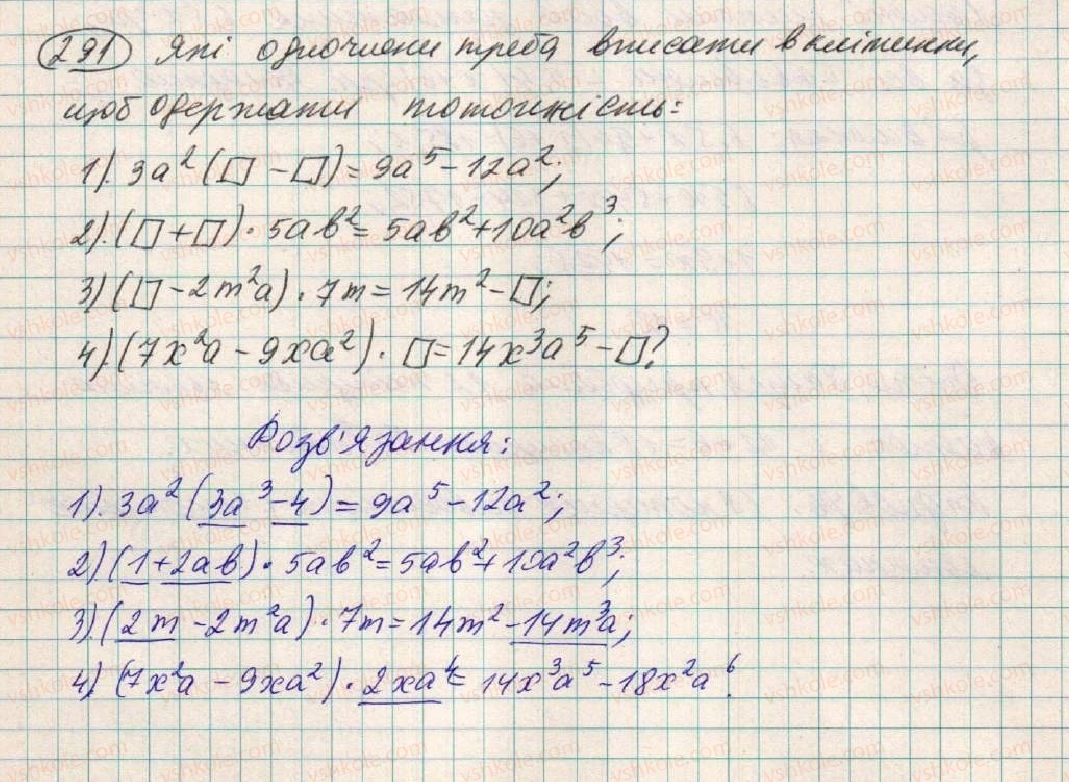 291 Які одночлени треба вписати в клітинки,
щоб одержати тотожність:
1). 3a²(□ - □) = 9a⁵ - 12a²;
2). (□ + □) · 5ab² = 5ab² + 10a²b³;
3) (□ - 2m²a) · 7m = 14m² - □;
4) (7x²a - 9xa²) · □ = 14x³a⁵ - □?
Розв'язання:
1). 3a² (3a³ - 4) = 9a⁵ - 12a²;
2) (1 + 2ab) · 5ab² = 5ab² + 10a²b³;
3) (2m - 2m²a) · 7m = 14m² - 14m³a;
4) (7x²a - 9xa²) · 2xa⁴ = 14x³a⁵ - 18x²a⁶.